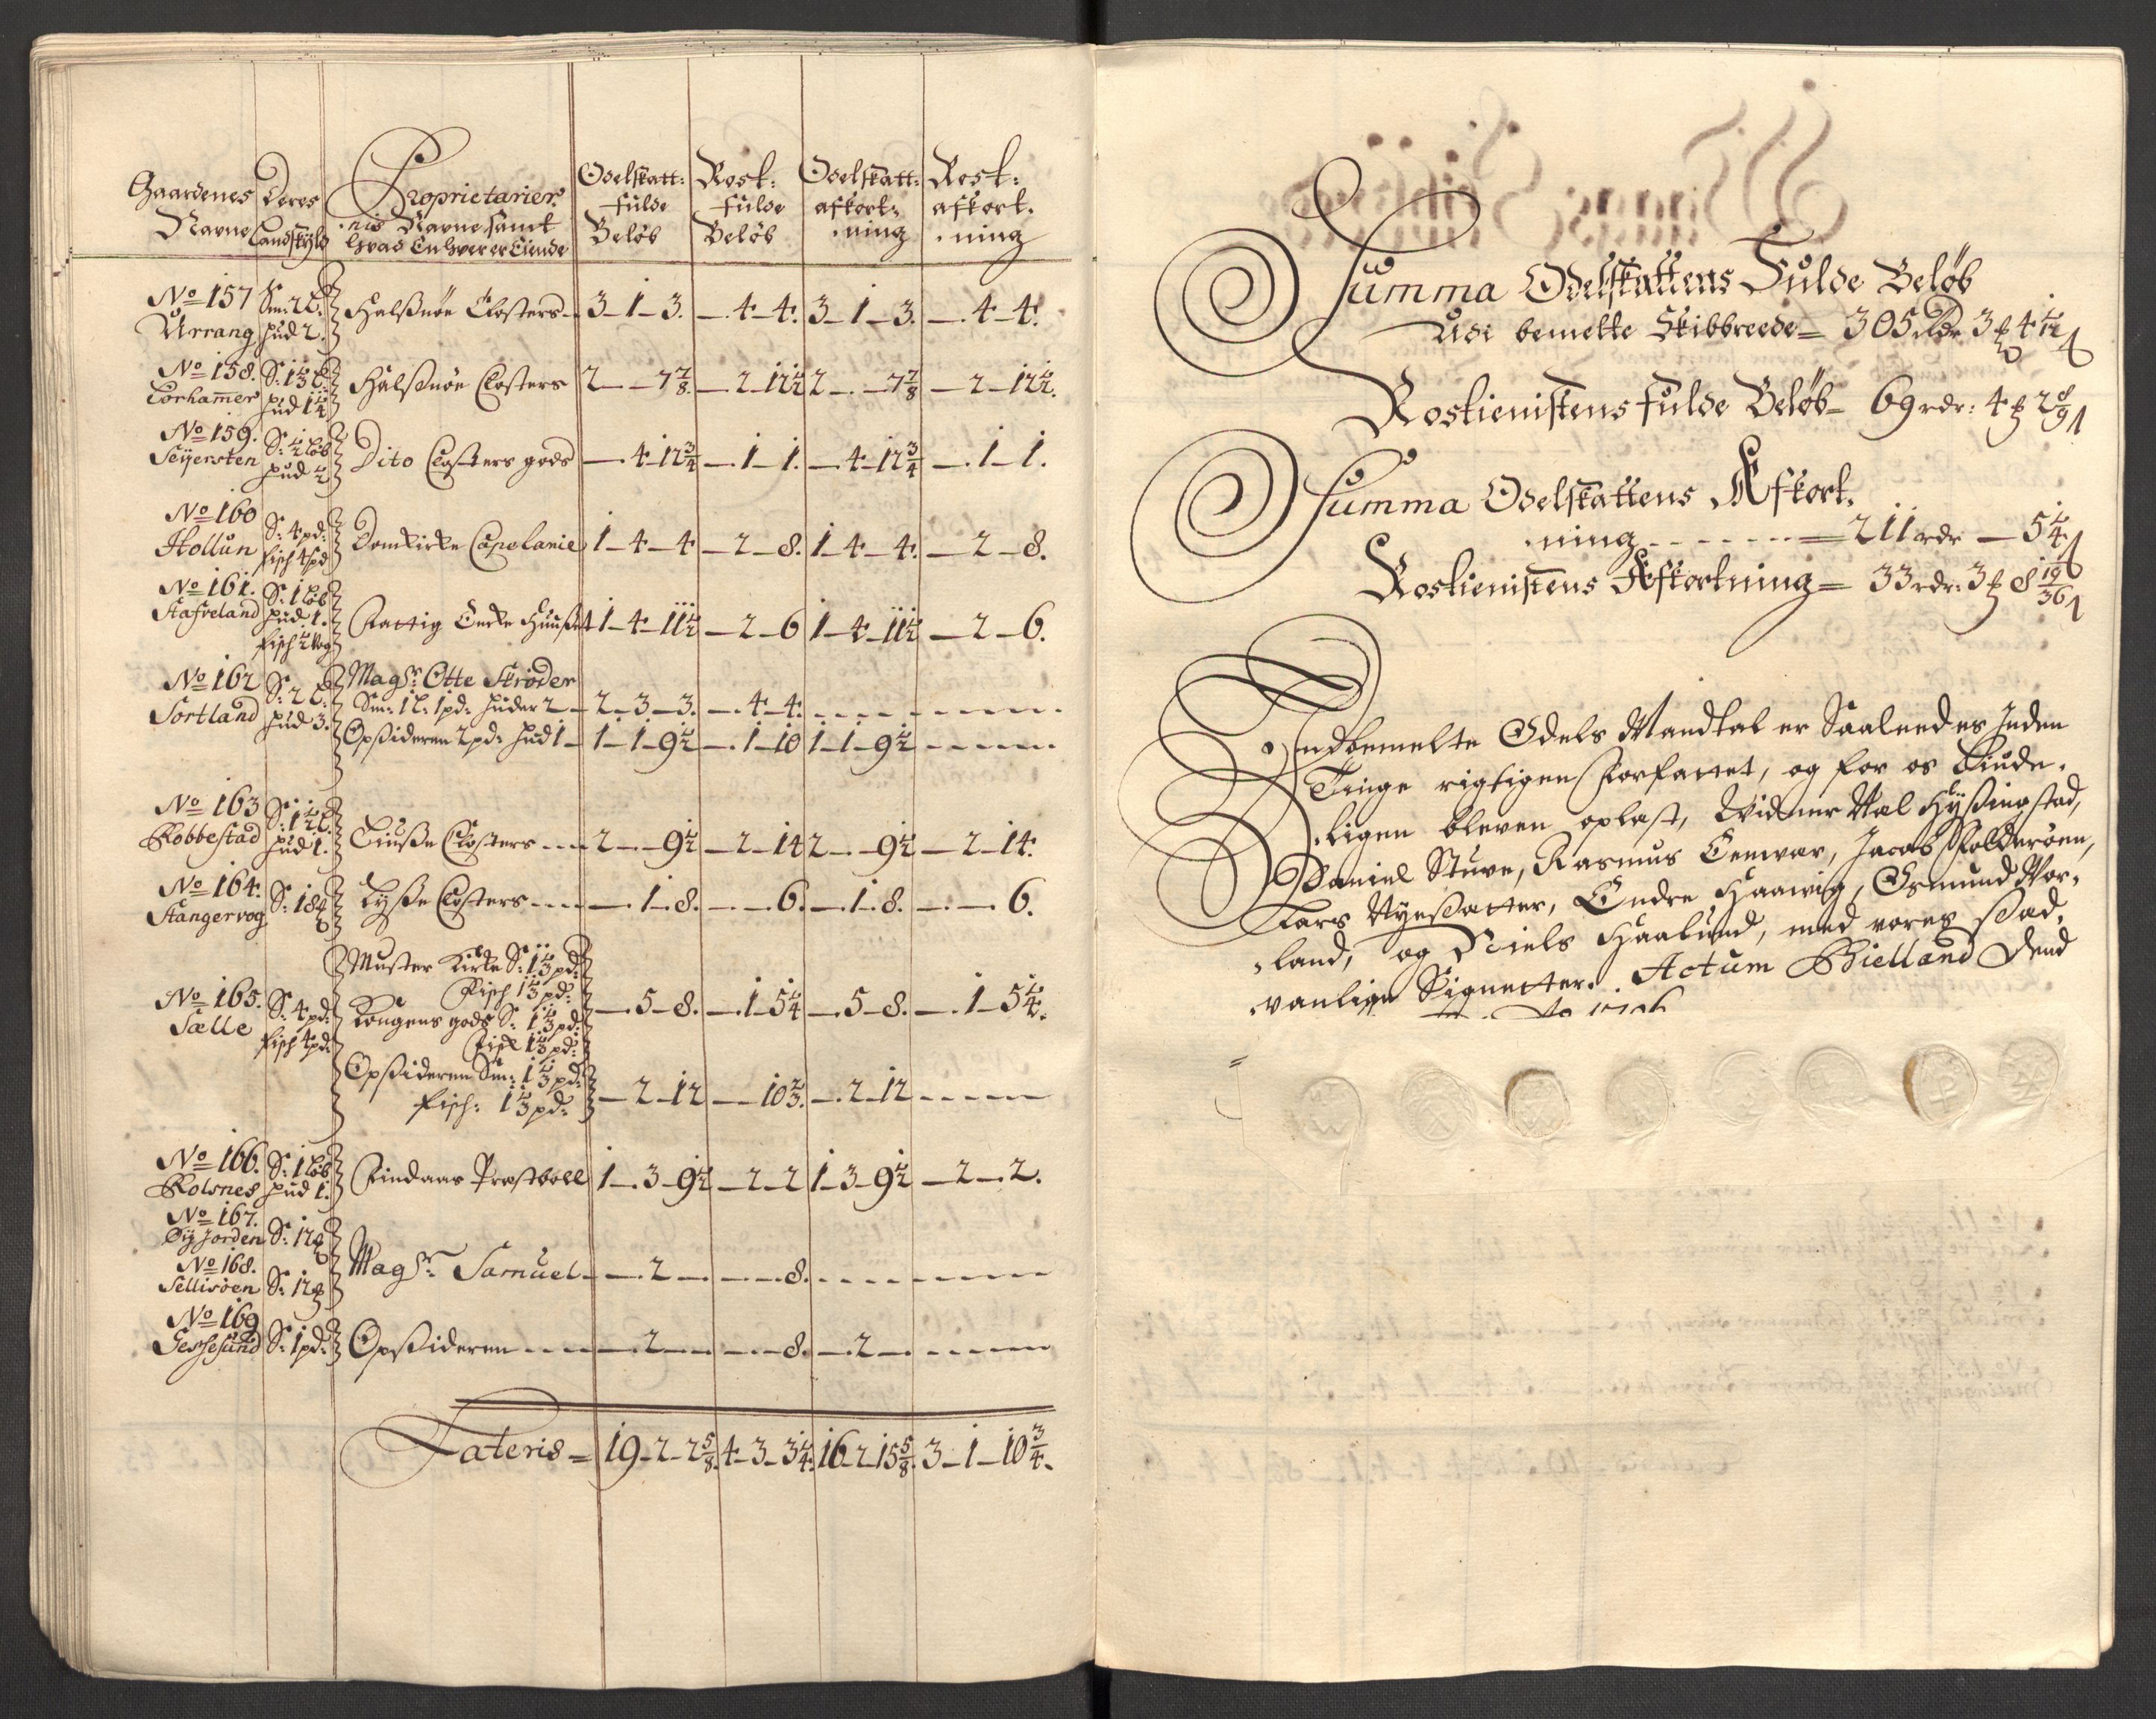 Gaardenes Navne | Deres Landskÿld | Proprietarier: nis Navne samt hvad Enhver er Eiende | Odelskatt: fulde Beløb | Rost: fulde Beløb | Odelskatt: afkort: ning | Rost: afkort: ning
No 157 Urrang | Sm: 2 L: hud 2. | Halßnöe Closters | 3-1-3. | -4-4. | 3-1-3. | -4-4.
No 158. | S: 1⅓ L: hud 1¼ | Halßnöe Closters | 2-7⅞. | -2-12½ | 2-7⅞ | -2-12½.
No 159. Seÿersten | S: ½ Løb hud ½ | Dito Closters gods | -4-12¾ | -1-1. | -4-12¾ | -1-1.
No 160 Hollun | S: 4 pd: fisch 4 pd | Domkirke Capelanie | 1-4-4 | -2-8. | 1-4-4. | -2-8.
No 161. Stafveland | S: 1 Løb hud 1. fisch ½ Vog | Fattig Encke Huuset | 1-4-11½ | -2-6 | 1-4-11½ | -2-6.
No 162 Sortland | S: 2 L: hud 3. | Magsr: Otte Ströder
Sm: 1 L: 1 pd: huder 2 | 2-3-3. | -4-4.
Opsideren 2 pd: hud 1 | 1-1-9½ | -1-10 | 1-1-9½
No 163 Robbestad | S: 1½ L: hud 1. | Liuße Closters | 2-9½ | -2-14 | 2-9½ | -2-14.
No 164. Stangervog | S: 18 | Lÿße Closters | -1-8. | -6. | -1-8. | -6.
No 165. Sælle | S: 4 pd: fisch 4 pd: | Muster Kirke S: 1⅓ pd:
Fisch 1⅓ pd:
Kongens gods S: 1⅓ pd: | -5-8. | -1-5¼ | -5-8. | -1-5¼.
Fisch 1⅓ pd:
Opsideren Sm: 1⅓ pd:
fisch: 1⅓ pd: | -2-12 | -10⅔. | -2-12
No 166. Rolsnes | S: 1 Løb hud 1. | Findaas Præstboll | 1-3-9½ | -2-2 | 1-3-9½ | -2-2.
No 167. | S: 12
No 168. Sellisöen | S: 12 | Magsr: Samuel | -2- | -8.
No 169 | S: 1 pd: | Opsideren | -2- | -8. | -2-
Lateris = | 19-2-2⅝. | 4-3-3¼. | 16-2-15⅝. | 3-1-10¾.
Summa Odelskattens Fulde Beløb
Udi bemelte Skibbreede = 305 rdr 3 4½
Rostienistens fulde Beløb = 69 rdr: 4 2 8/9
Summa Odelskattens Afkort.
ning = 211 rdr - 5¼
Rostienistens Afkortning = 33 rdr: 3 8 19/36
Indbemelte Odels Mandtal er Saaleedes Inden
Tinge rigtigen Forfattet, og for os tiude-
ligen bleven oplæst, Vidner Vel Hÿßingstad,
Daniel Stuve, Rasmus Eenvær, Jacob Folderöen,
Lars Nÿesætter, Endre Haawig, Osmund Vor-
land, og Niels Haalund, med vores sæd-
vanlige Signetter. Actum Bielland Dend